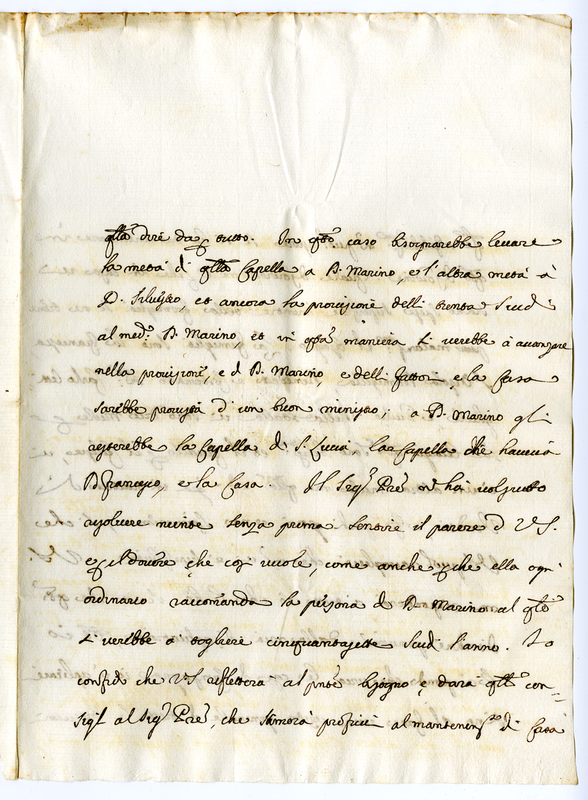 qlla dire da per tutto. In qsto caso bisognarebbe levare
la metà di qlla Capella a D. Marino, e l'altra metà à
D. Silvestro, et ancora la provisione delli trenta Scudi
al med.º D. Marino, et in qsta maniera si verebbe à avanzare
nella provisione, e d D. Marino, e delli fattori e la Casa
sarebbe provista d'un buon ministro; a D. Marino gli
resterebbe la Capella di S. Lucia, la Capella che haveva
D. Francesco, e la Casa. Il Sig.r Pre non hà voluto
risolvere niente senza prima sentire il parere d V.S.
e il dovere che così vuole, come anche perche ella ogni
ordinario raccomanda la persona di D. Marino al qle
si verebbe a togliere cinquantasette Scudi l'anno. Io
confido che VS rifletterà al pnte bisogno e darà qll con=
sigl al Sig.r Pre, che stimarà proficui al mantenim.to di Casa